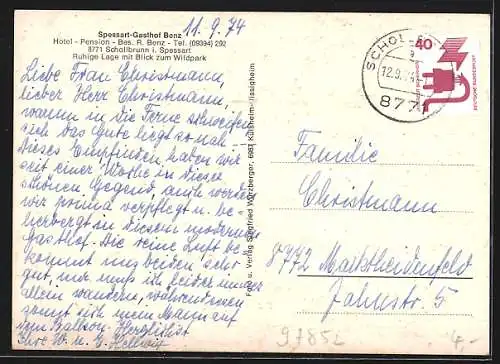 Spessart-Gasthof Benz
Hotel - Pension - Bes. R. Benz - Tel. (09394) 292
8771 Schollbrunn i. Spessart
Ruhige Lage mit Blick zum Wildpark
11.9.74
Liebe Frau Christmann,
lieber Herr Christmann,
warum in die Ferne schweifen
sieh das Gute liegt so nah –
Dieses Empfinden haben wir
seit einer Woche in dieser
schönen Gegend, auch werden
wir prima verpflegt u. be-
herbergt in diesem modernen
Gasthof. Die reine Luft be-
kommt uns beiden sehr
gut, nur muß ich leider immer
allein wandern, währenddessen
sonnt sich mein Mann auf
dem Balkon. Herzlichst
Ihre W. u. G.
Foto u. Verlag Siegfried Würzberger, 6981 Külsheim-Uissigheim
SCHOLL
12.9.
877
40
DEUTSCHE BUNDESPOST
Familie
Christmann
8772 Marktheidenfeld
Jahnstr. 5
97852
4,-